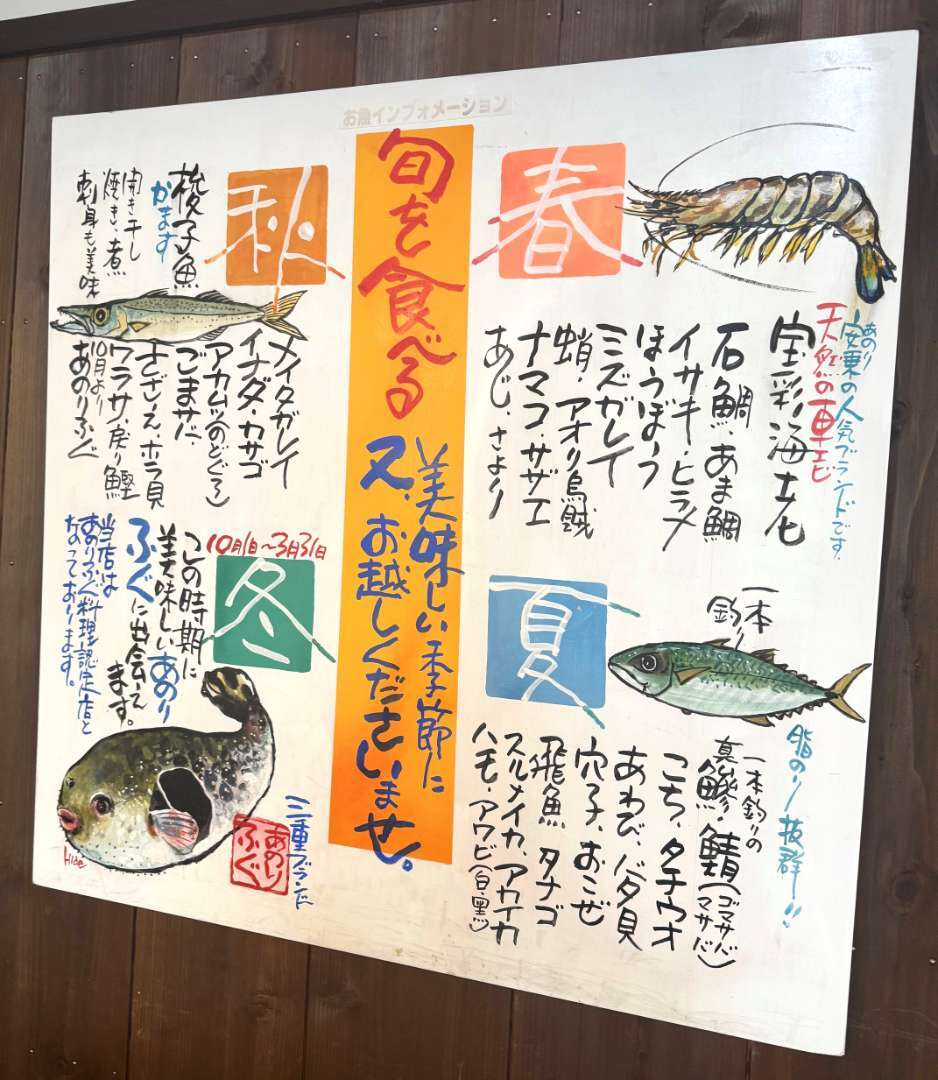 お魚インフォメーション
旬を食べる
美味しい季節に
又、お越しくださいませ。
春
あのり
安乗の人気ブランドです。
天然の車エビ
宝彩海老
石鯛、あま鯛
イサキ・ヒラメ
ほうぼう
ミズガレイ
蛸・アオリ烏賊
ナマコ・サザエ
あじ、さより
夏
一本
釣り
脂のり抜群!!
一本釣りの
真鯵・鯖(ゴマサバ
マサバ)
こち、タチウオ
あわび、バタ貝
穴子、おこぜ
飛魚、タナゴ
スルメイカ、アカイカ
ハモ・アワビ(白・黒)
秋
梭子魚
かます
開き干し
焼き、煮
刺身も美味
ナイタガレイ
イナダ・カサゴ
アカムツ(のどぐろ)
ごまサバ
さざえ、ホラ貝
ワラサ、戻り鰹
10月より
あのりふぐ
10月1日〜3月31日
冬
この時期に
美味しいあのり
ふぐに出会え
ます。
当店は
あのりふぐ料理認定店と
なっております。
三重ブランド
あのり
ふぐ
Hide